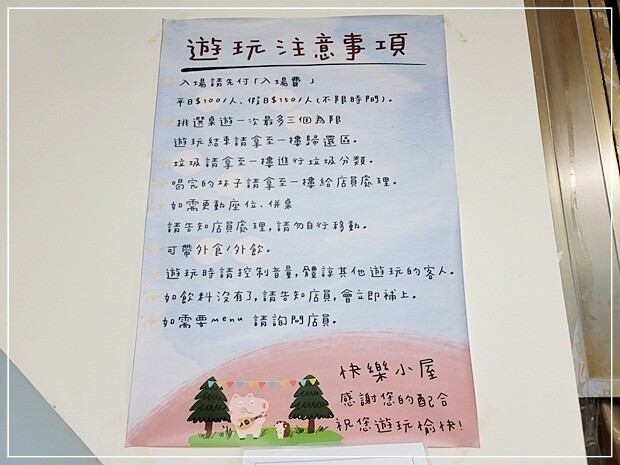 遊玩注意事項
入場請先付「入場費」
平日$100/人、假日$150/人(不限時間)。
挑選桌遊一次最多三個為限
遊玩結束請拿至一樓歸還區。
垃圾請拿至一樓進行垃圾分類。
喝完的杯子請拿至一樓給店員處理。
如需更動座位、併桌
請告知店員處理,請勿自行移動。
可帶外食/外飲。
遊玩時請控制音量,體諒其他遊玩的客人。
如飲料沒有了,請告知店員,會立即補上。
如需要menu 請詢問店員。
快樂小屋
感謝您的配合
祝您遊玩愉快!